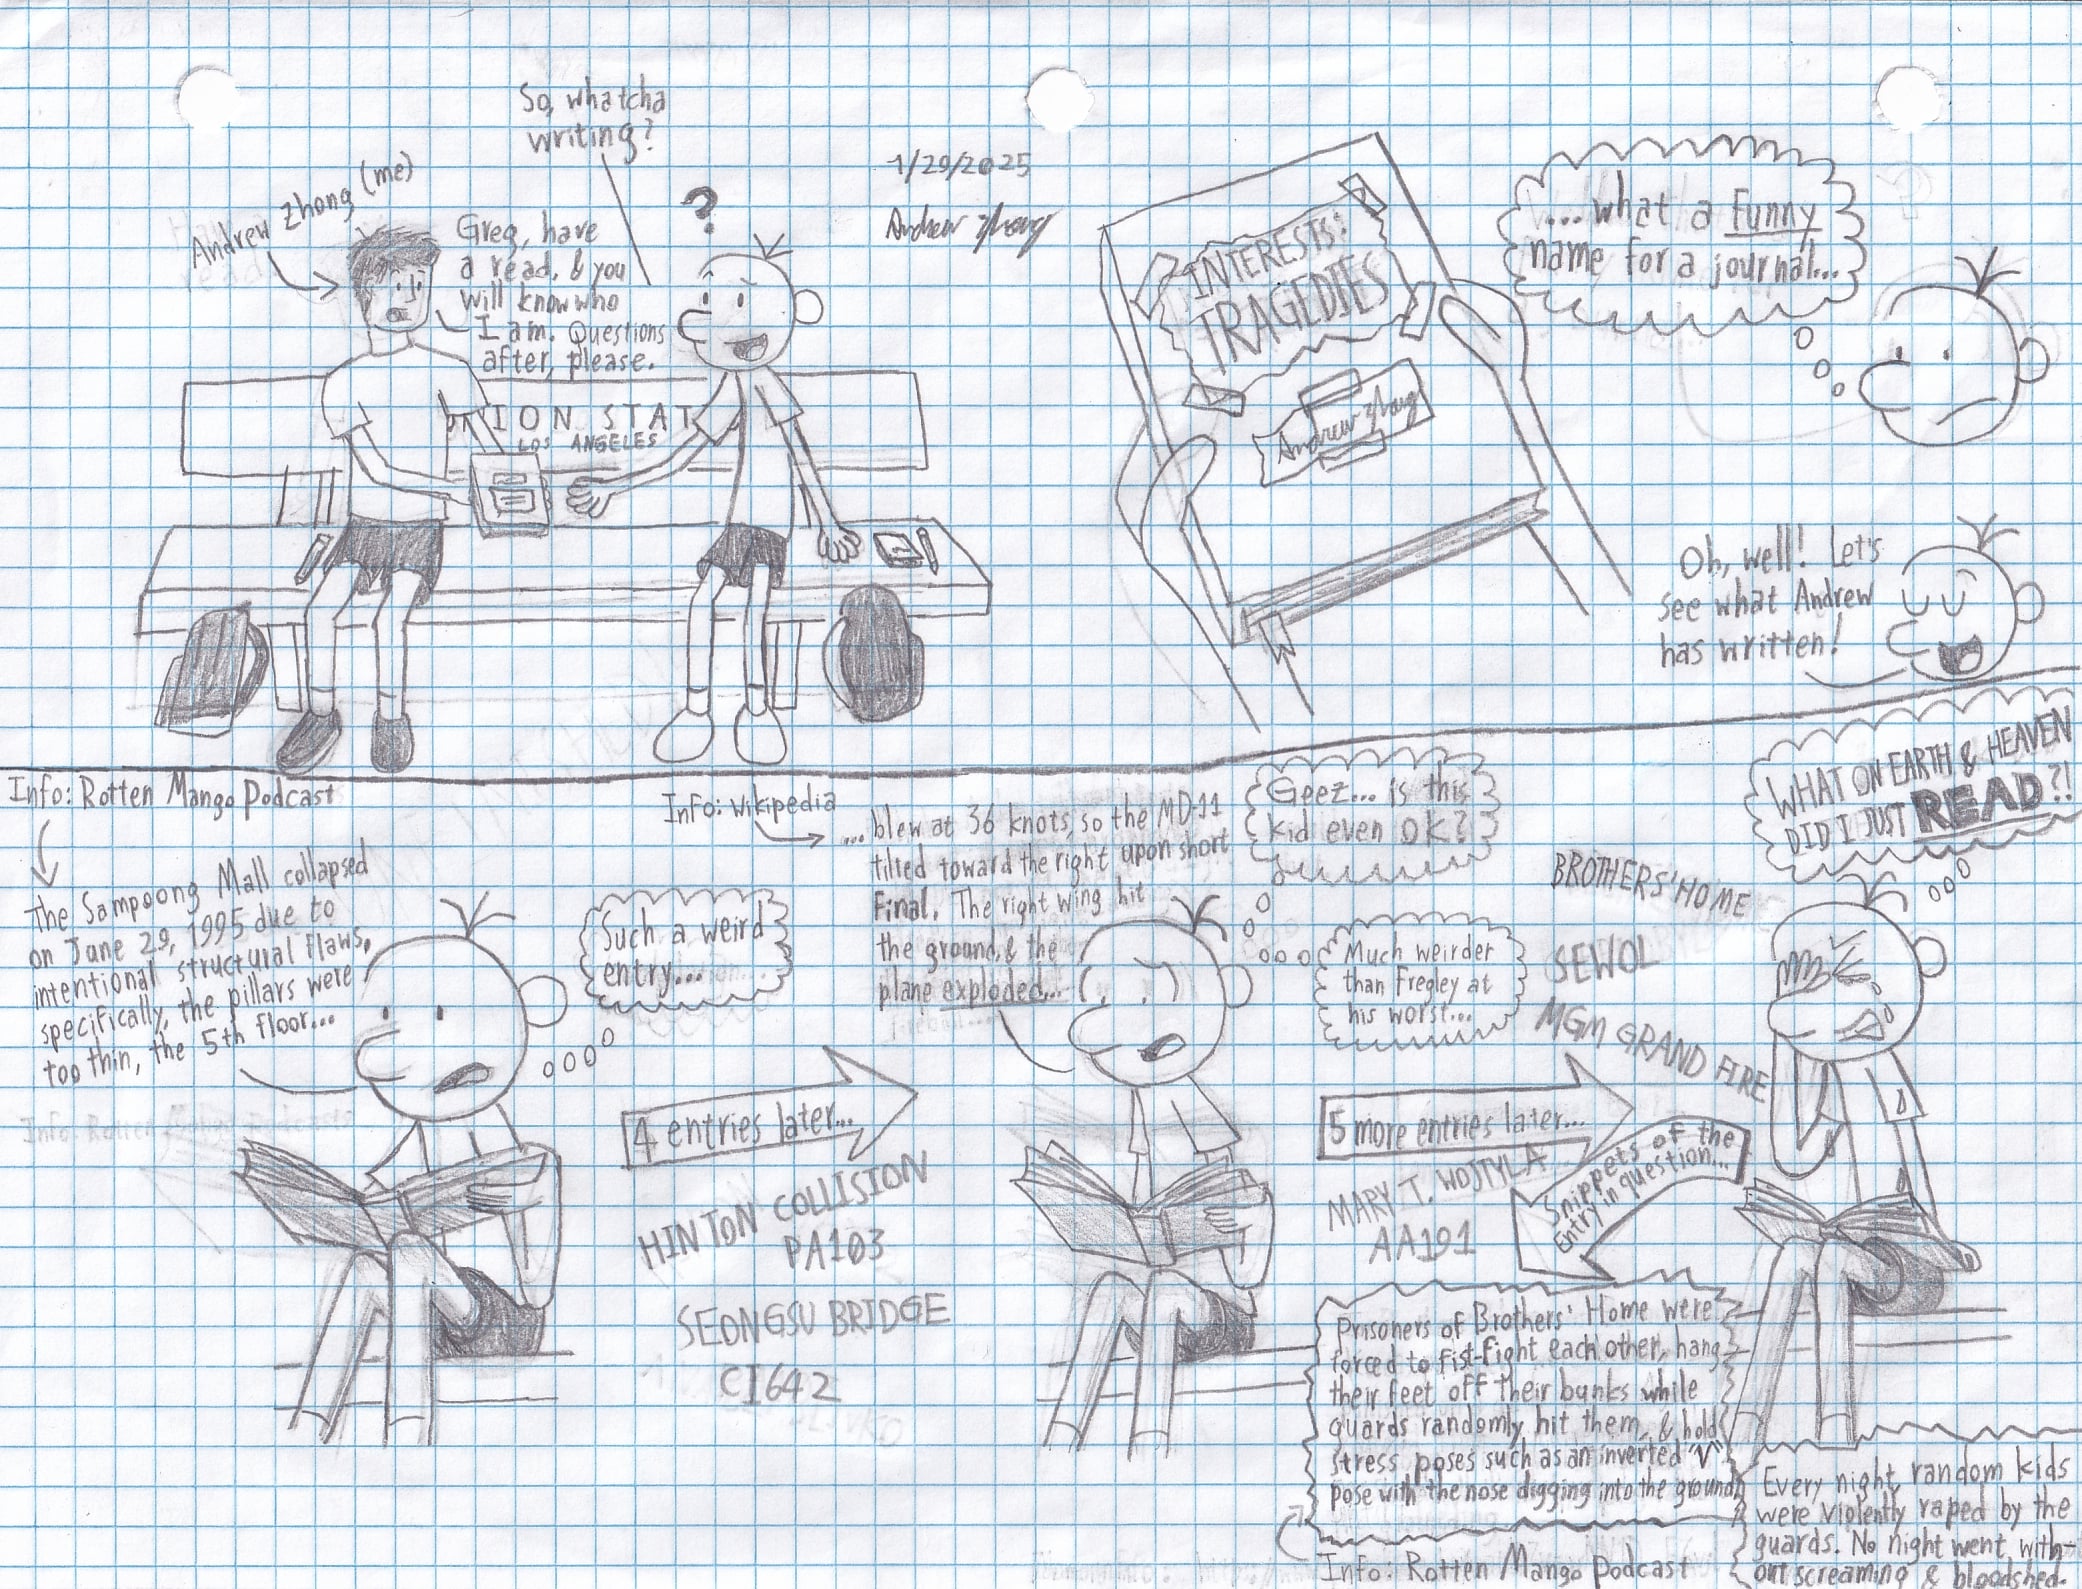 So, whatcha
writing?
Andrew Zhong (me)
Greg, have
a read, & you
will know who
I am. Questions
after, please.
ION STAT
LOS ANGELES
1/29/2025
Andrew Zhong
INTERESTS:
TRAGEDIES
Andrew Zhong
...what a funny
name for a journal...
Oh, well! Let's
see what Andrew
has written!
Info: Rotten Mango Podcast
The Sampoong Mall collapsed
on June 29, 1995 due to
intentional structural flaws,
specifically, the pillars were
too thin, the 5th floor...
Such a weird
entry...
4 entries later...
HINTON COLLISION
PA103
SEONGSU BRIDGE
CI642
Info: Wikipedia
... blew at 36 knots, so the MD-11
tilted toward the right upon short
final. The right wing hit
the ground, & the
plane exploded...
Geez... is this
kid even OK?
Much weirder
than Fregley at
his worst...
5 more entries later...
MARY T. WOJTYLA
AA191
BROTHERS' HOME
SEWOL
MGM GRAND FIRE
WHAT ON EARTH & HEAVEN
DID I JUST READ?!
Snippets of the
entry in question...
Prisoners of Brothers' Home were
forced to fist-fight each other, hang
their feet off their bunks while
guards randomly hit them, & hold
stress poses such as an inverted "V"
pose with the nose digging into the ground
Info: Rotten Mango Podcast
Every night, random kids
were violently raped by the
guards. No night went with-
out screaming & bloodshed.